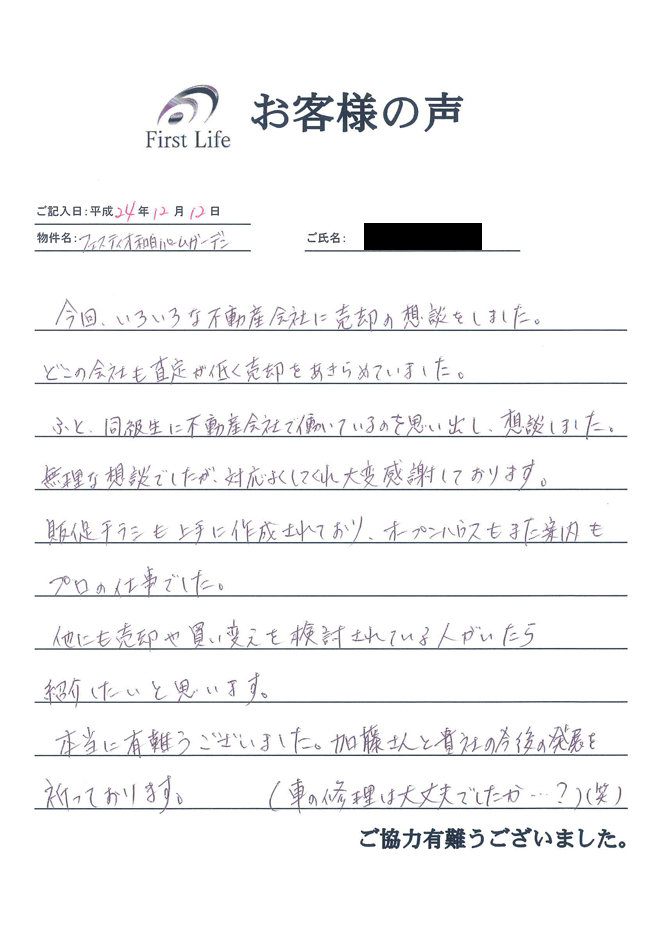 First Life
お客様の声
ご記入日:平成24年12月12日
物件名:フェスティオ和白パームガーデン
ご氏名:
今回、いろいろな不動産会社に売却の想談をしました。
どこの会社も査定が低く売却をあきらめていました。
ふと、同級生に不動産会社で働いているのを思い出し、想談しました。
無理な想談でしたが、対応よくしてくれ大変感謝しております。
販促チラシも上手に作成されており、オープンハウスもまた案内も
プロの仕事でした。
他にも売却や買い変えを検討されている人がいたら
紹介したいと思います。
本当に有難うございました。加藤さんと貴社の今後の発展を
祈っております。 (車の修理は大丈夫でしたか…?)(笑)
ご協力有難うございました。